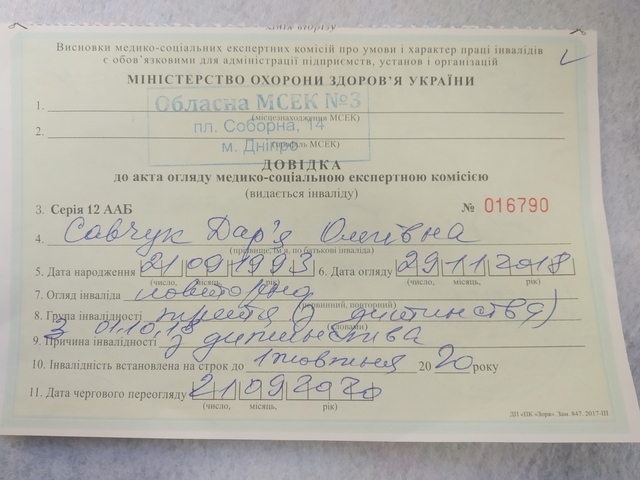 лінія відрізу
Висновки медико-соціальних експертних комісій про умови і характер праці інвалідів
є обов'язковими для адміністрації підприємств, установ і організацій
МІНІСТЕРСТВО ОХОРОНИ ЗДОРОВ'Я УКРАЇНИ
1.
Обласна МСЕК №3
(місцезнаходження МСЕК)
пл. Соборна, 14
2.
(профіль МСЕК)
м. Дніпро
ДОВІДКА
до акта огляду медико-соціальною експертною комісією
(видається інваліду)
3. Серія 12 ААБ № 016790
4. Савчук Дар'я Олегівна
(прізвище, ім'я, по батькові інваліда)
5. Дата народження 21 09 1993 6. Дата огляду 29 11 2018
(число, місяць, рік) (число, місяць, рік)
7. Огляд інваліда повторно
(первинний, повторний)
8. Група інвалідності третя (з дитинства)
(словами)
З 01.10.18
9. Причина інвалідності з дитинства
10. Інвалідність встановлена на строк до 1 жовтня 2020 року
11. Дата чергового переогляду 21 09 2020
(число, місяць, рік)
ДП «ПК «Зоря». Зам. 847. 2017-ІІІ